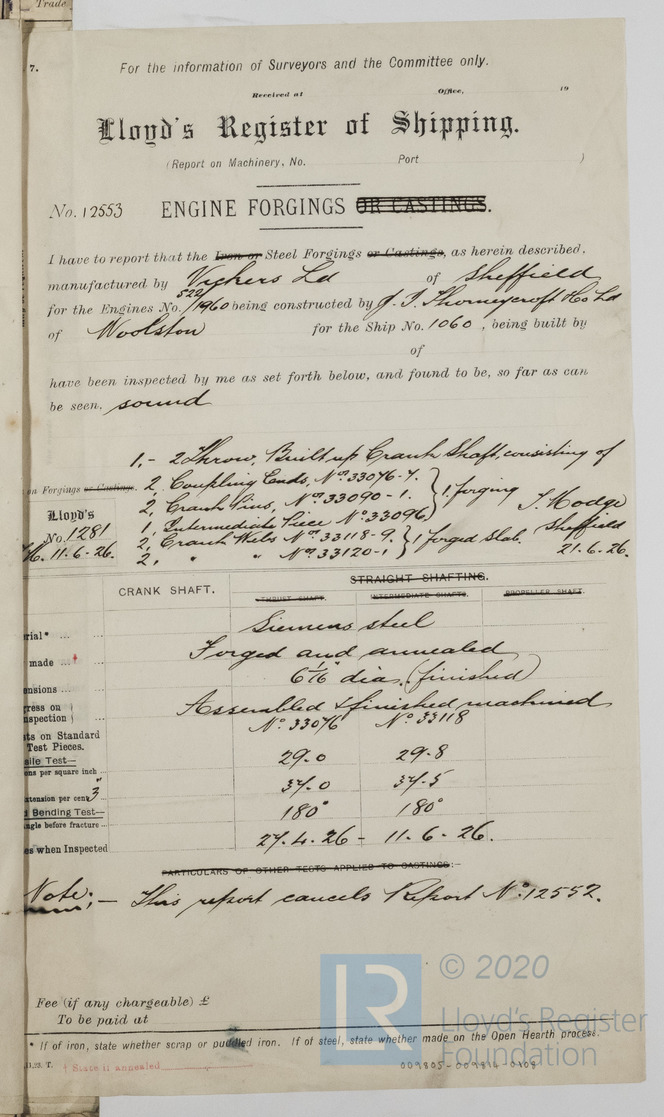 Trade
7.
For the information of Surveyors and the Committee only.
Received at Office, 19
Lloyd's Register of Shipping.
(Report on Machinery, No. Port )
No. 12553 ENGINE FORGINGS OR CASTINGS.
I have to report that the Iron or Steel Forgings or Castings, as herein described,
manufactured by Vickers Ld of Sheffield
for the Engines No. 522/1960 being constructed by J. I. Thorneycroft & Co Ld
of Woolston for the Ship No. 1060, being built by
of
have been inspected by me as set forth below, and found to be, so far as can
be seen, sound
1,- 2 Throw, Built up Crank Shaft, consisting of
on Forgings or Castings. 2, Coupling Ends, Nos 33076-7. } 1 forging
2, Crank Pins, Nos 33090-1.
Lloyd's 1, Intermediate Piece No 33096 J. Hodge
No. 1281 2, Crank Webs Nos 33118-9. } 1 forged slab. Sheffield
H. 11.6.26. 2, " " Nos 33120-1 21.6.26.
CRANK SHAFT. STRAIGHT SHAFTING.
THRUST SHAFT. INTERMEDIATE SHAFTS. PROPELLER SHAFT.
rial* ... Siemens steel
made ... † Forged and annealed
ensions ... 6 1/16" dia. (finished)
gress on Assembled & finished machined
nspection No. 33076 No. 33118
ts on Standard
Test Pieces.
sile Test— 29.0 29.8
ons per square inch
xtension per cent 3" 37.0 37.5
Bending Test— 180° 180°
ngle before fracture
es when Inspected 27.4.26 - 11.6.26.
PARTICULARS OF OTHER TESTS APPLIED TO CASTINGS:—
Note:— This report cancels Report No. 12552.
Fee (if any chargeable) £
To be paid at
* If of iron, state whether scrap or puddled iron. If of steel, state whether made on the Open Hearth process.
11,23. T. † State if annealed
009805-009814-0108
LR © 2020
Lloyd's Register
Foundation